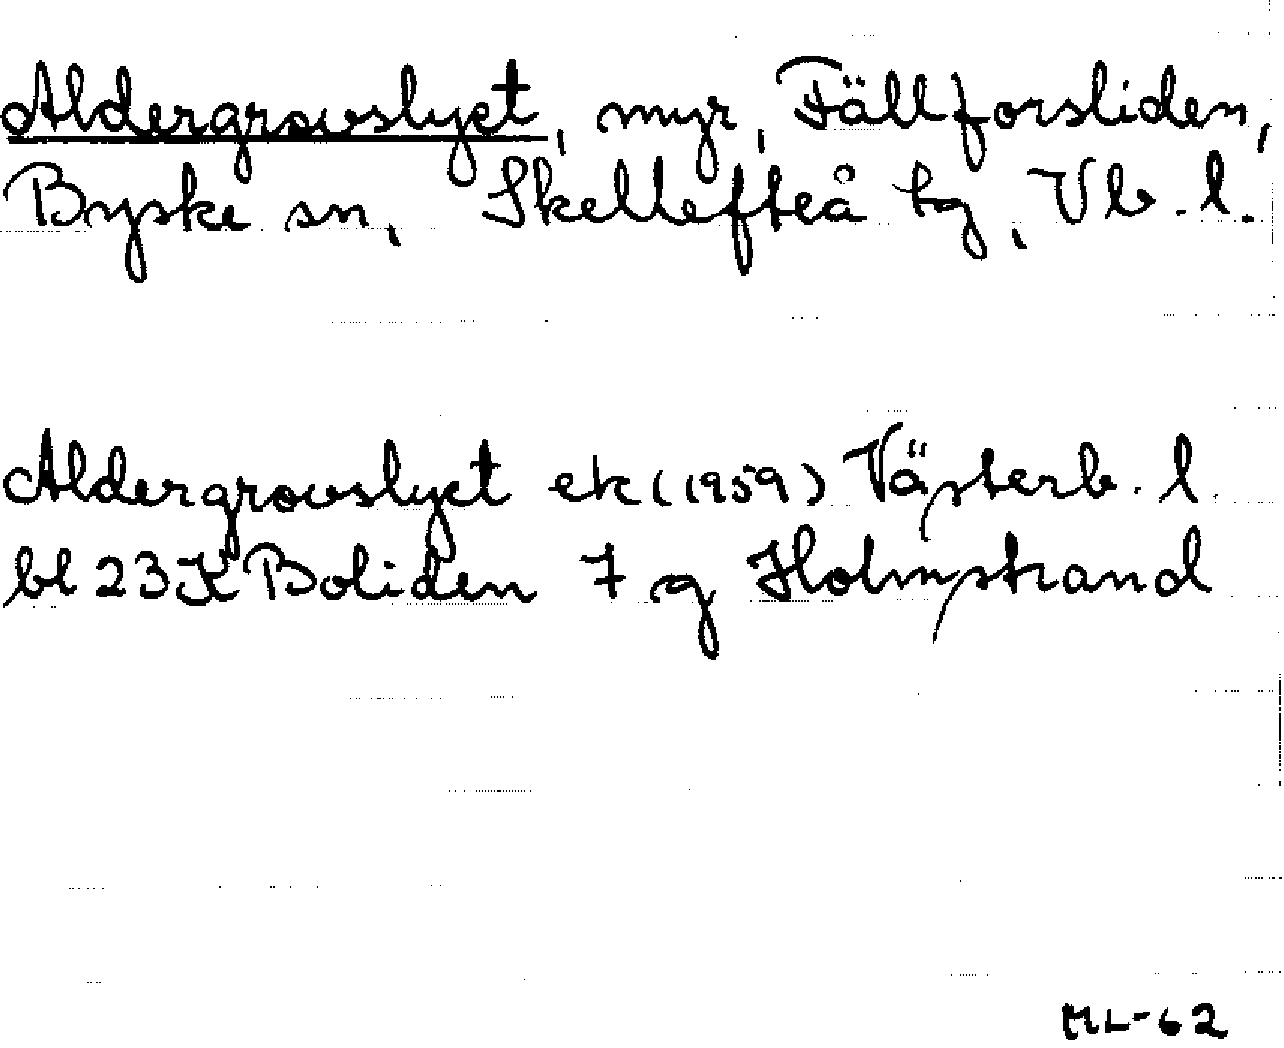 Aldergrovslyct, myr, Fällforsliden,
Byske sn, Skellefteå tg, Vb. l.
Aldergrovslyct ek (1959) Västerb. l.
bl 23K Boliden 7 g Holmstrand
ML-62